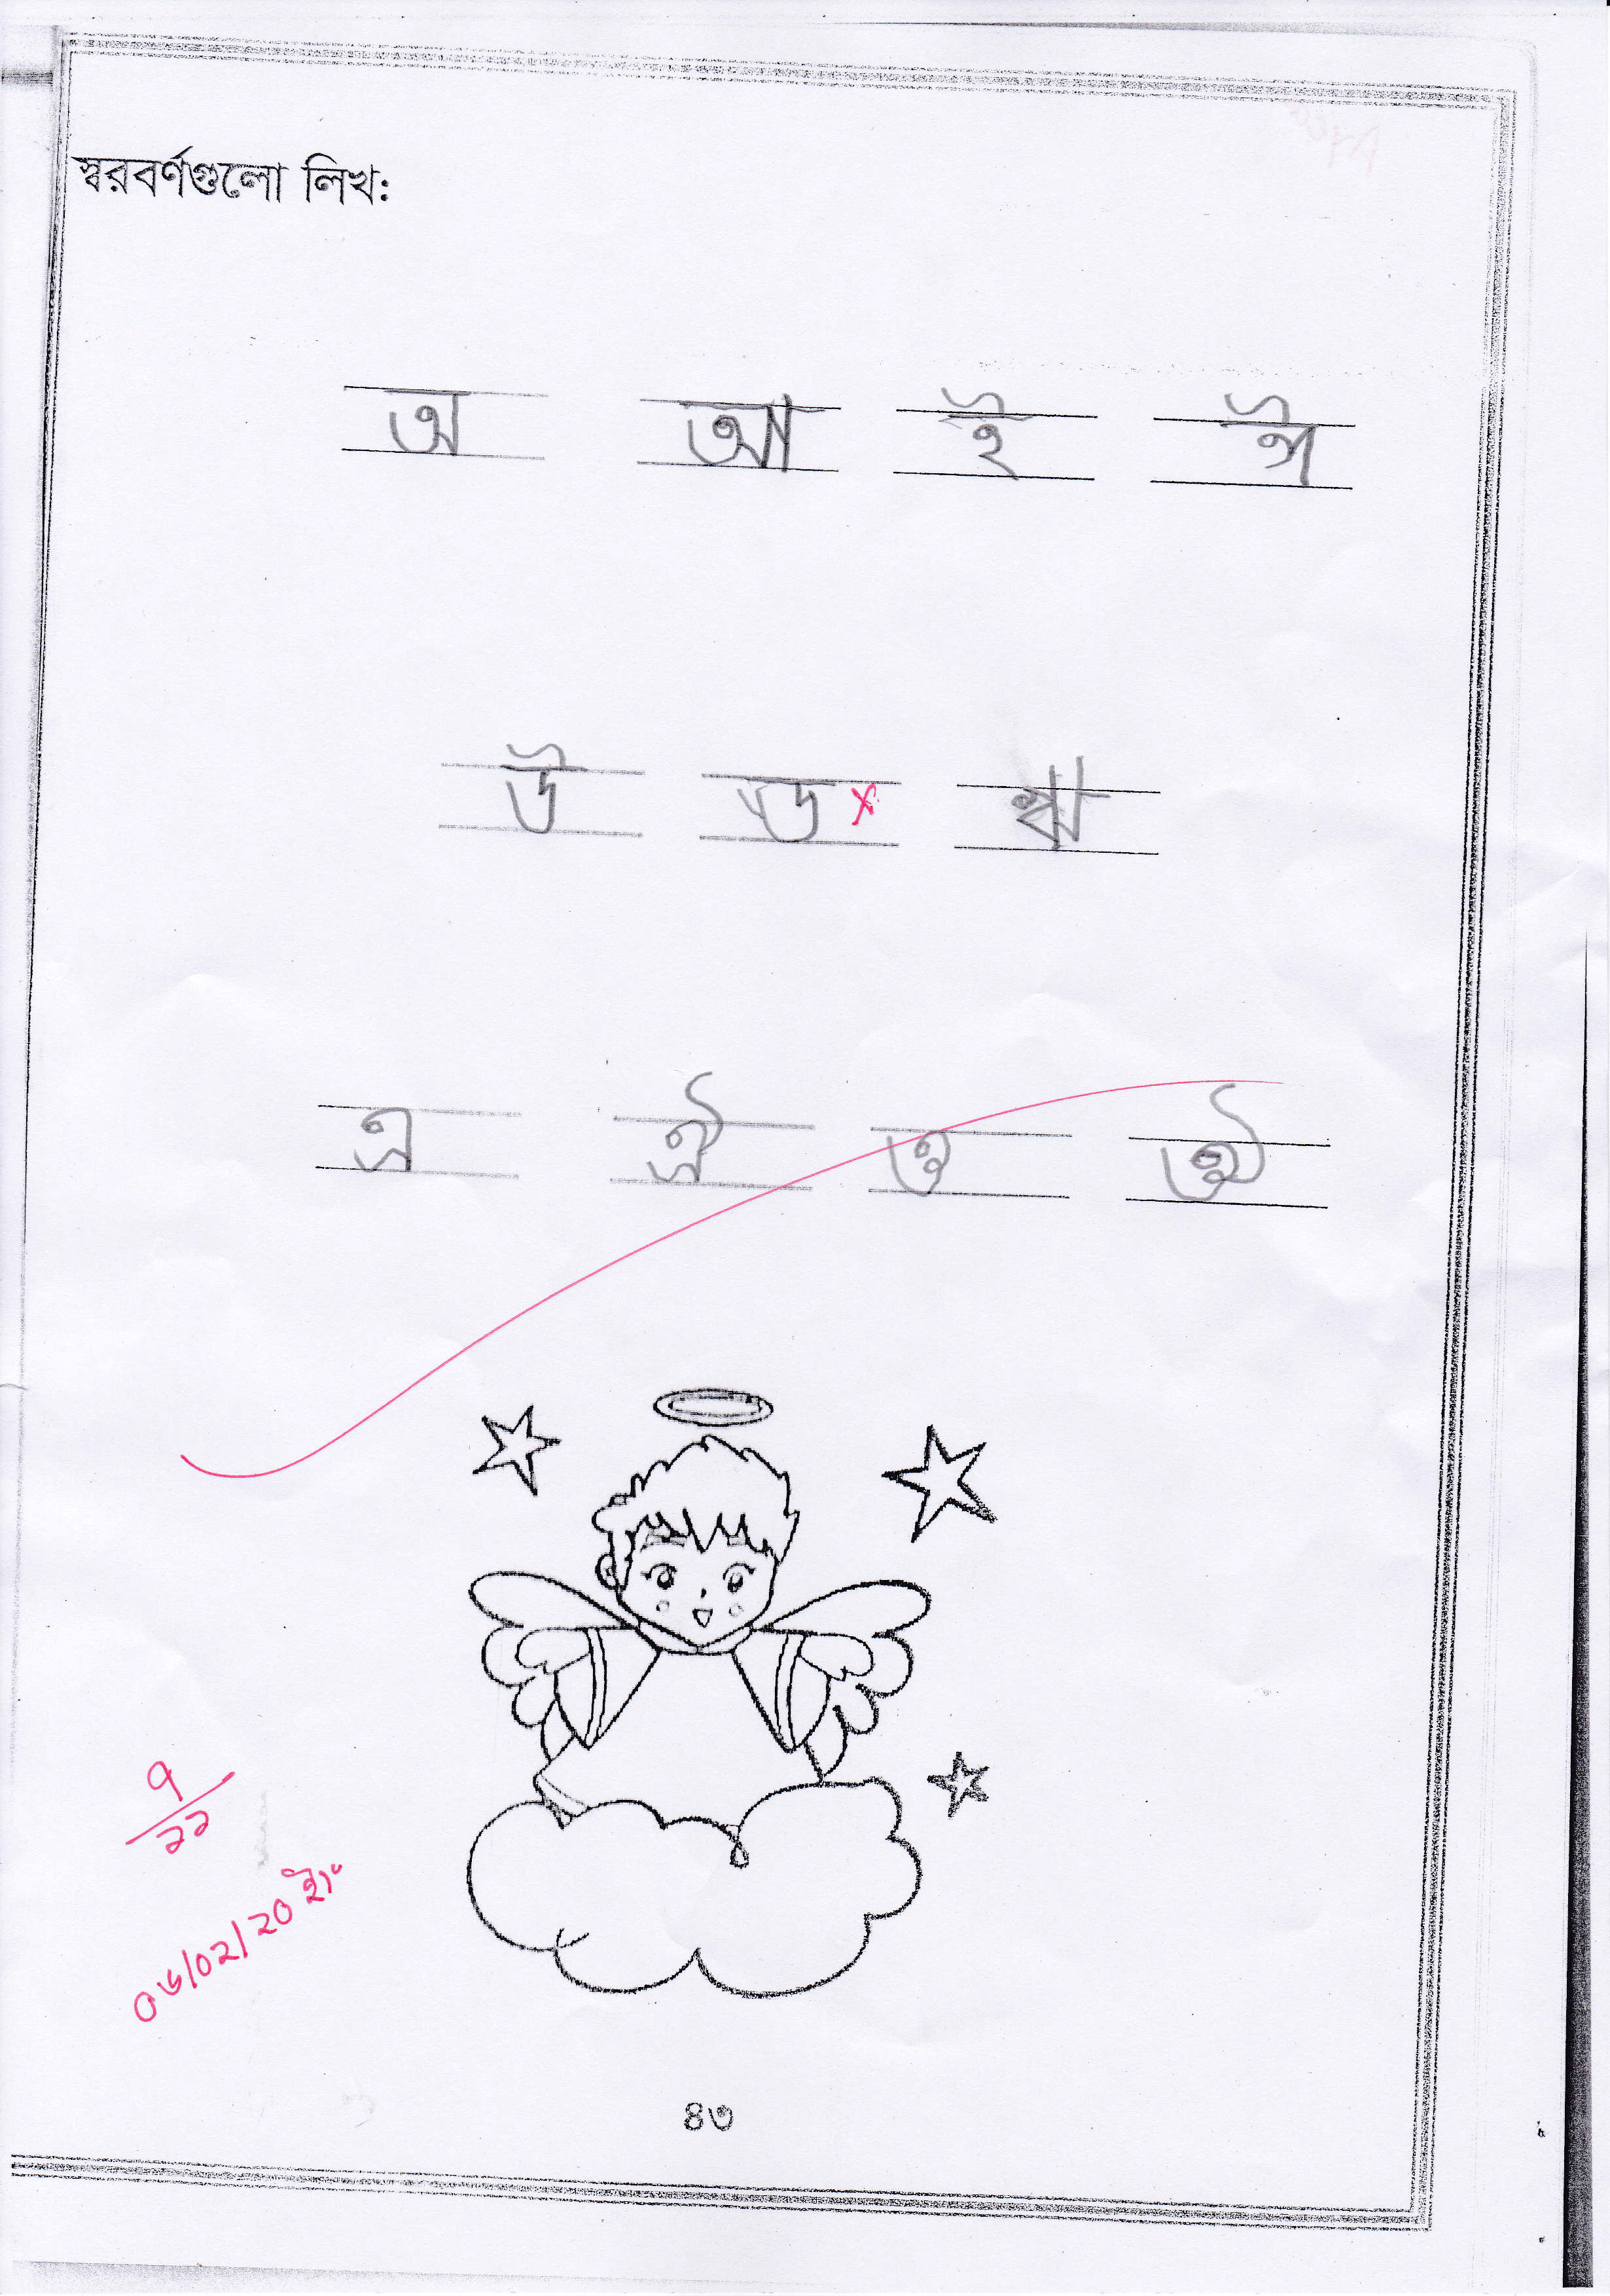 স্বরবর্ণগুলো লিখ:
অ আ ই ঈ
উ ড × ঋ
এ ঐ ও ঔ
৭
১১
০৬/০২/২০ ইং
৪৩